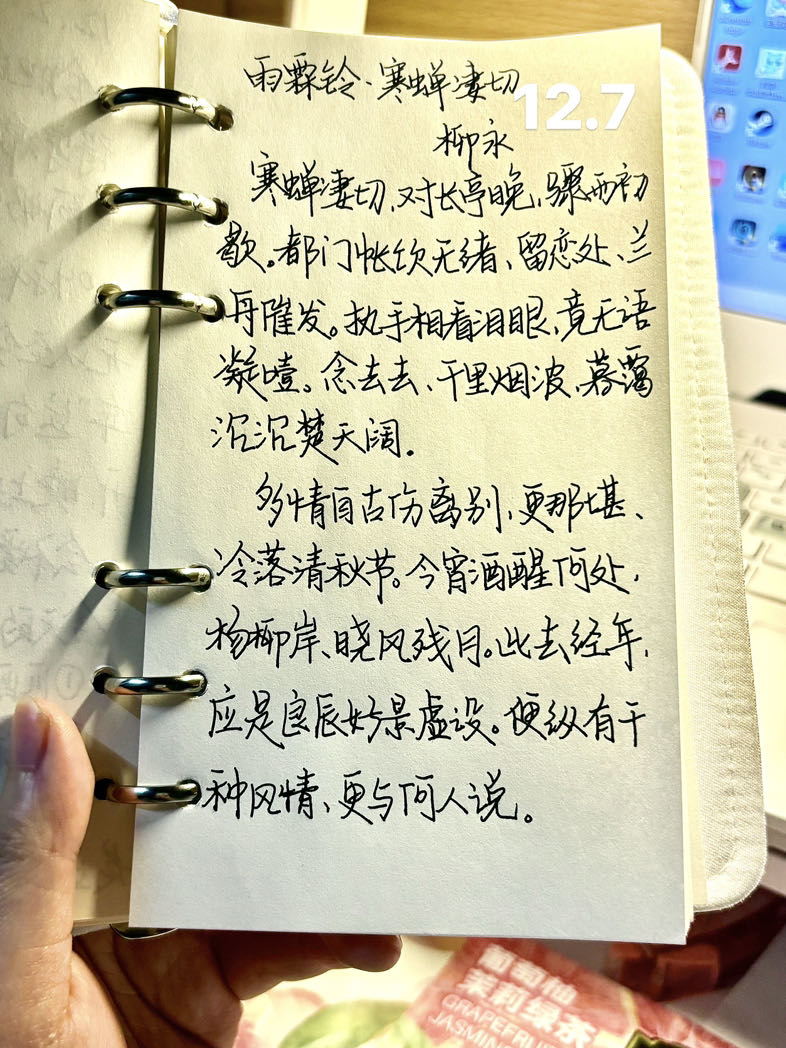 雨霖铃·寒蝉凄切
12.7
柳永
寒蝉凄切、对长亭晚，骤雨初
歇。都门帐饮无绪、留恋处、兰
舟催发。执手相看泪眼，竟无语
凝噎。念去去、千里烟波，暮霭
沉沉楚天阔.
多情自古伤离别，更那堪、
冷落清秋节。今宵酒醒何处，
杨柳岸、晓风残月。此去经年，
应是良辰好景虚设。便纵有千
种风情、更与何人说。
葡萄柚
茉莉绿茶
GRAPEFRUI
JASMIN